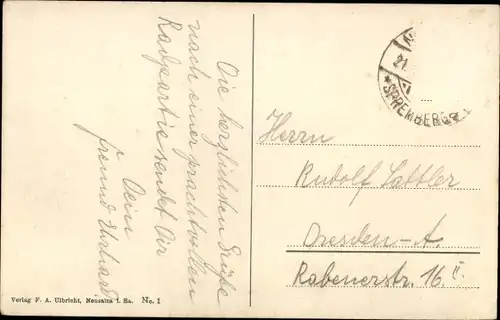 Die herzlichsten Grüße
nach einer prachtvollen
Radpartie sendet Dir
Dein
Freund Ehrhard
Herrn
Rudolf Sattler
Dresden-A.
Rabenerstr. 16 II.
21.
*SPREMBERG
Verlag F. A. Ulbricht, Neusalza i. Sa. No. 1